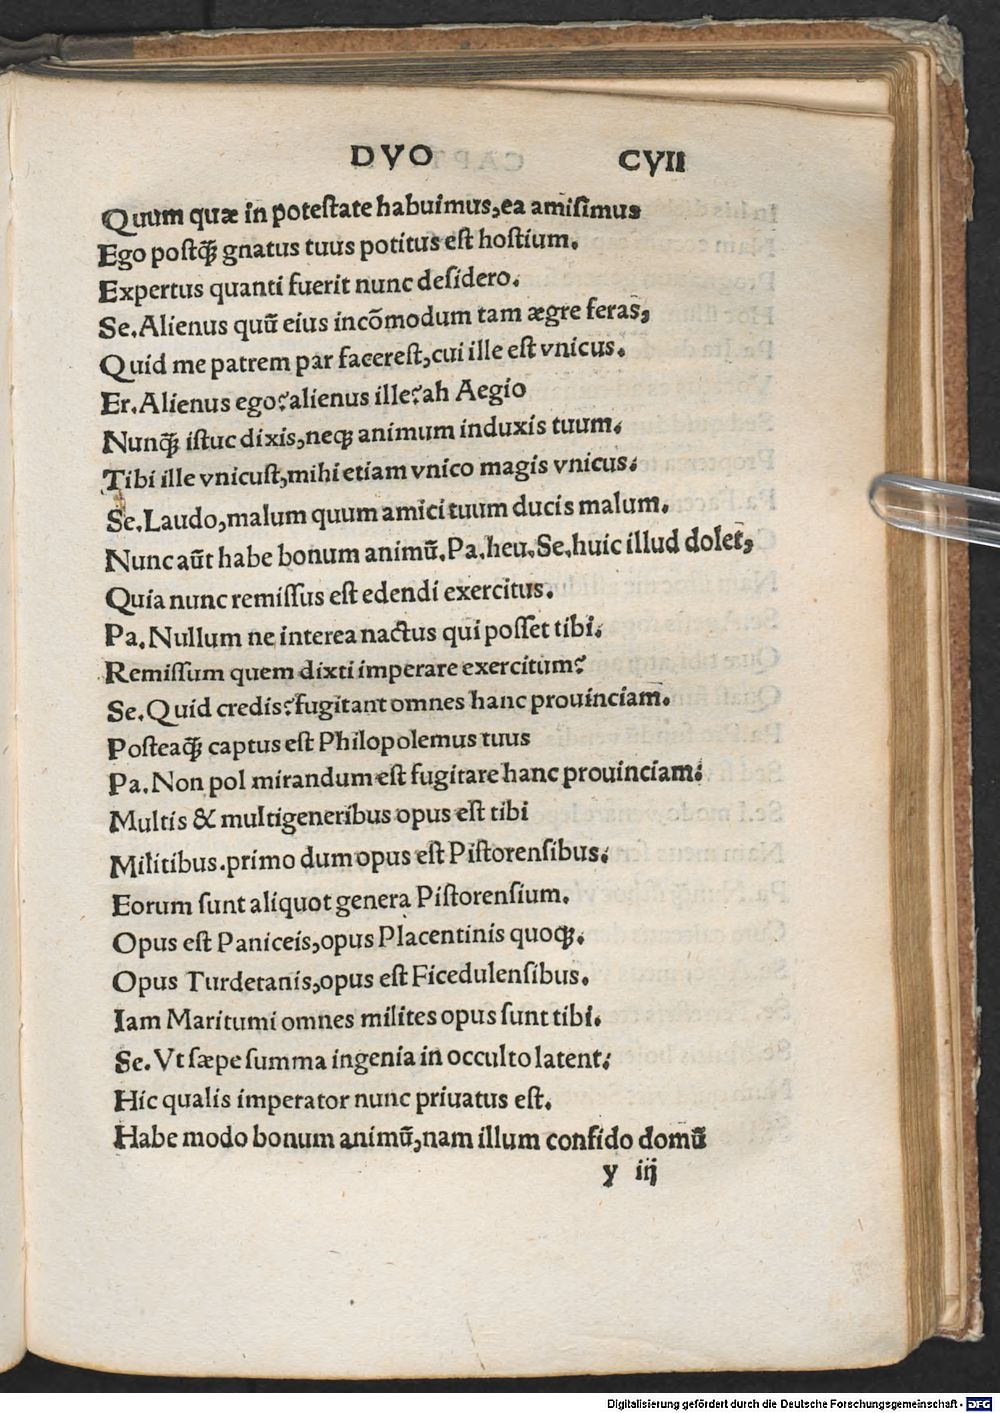 DVO CVII
Quum quæ in poteſtate habuimus,ea amiſimus
Ego poſtꝙ̃ gnatus tuus potitus eſt hoſtium.
Expertus quanti fuerit nunc deſidero.
Se.Alienus quũ eius incõmodum tam ægre feras,
Quid me patrem par facereſt,cui ille eſt vnicus.
Er.Alienus ego?alienus ille?ah Aegio
Nunꝙ̃ iſtuc dixis,neqꝫ animum induxis tuum.
Tibi ille vnicuſt,mihi etiam vnico magis vnicus.
Se.Laudo,malum quum amici tuum ducis malum.
Nunc aũt habe bonum animũ.Pa.heu.Se.huic illud dolet,
Quia nunc remiſſus eſt edendi exercitus.
Pa.Nullum ne interea nactus qui poſſet tibi.
Remiſſum quem dixti imperare exercitum?
Se.Quid credis?fugitant omnes hanc prouinciam.
Poſteaꝙ̃ captus eſt Philopolemus tuus
Pa.Non pol mirandum eſt fugitare hanc prouinciam.
Multis & multigeneribus opus eſt tibi
Militibus.primo dum opus eſt Piſtorenſibus.
Eorum ſunt aliquot genera Piſtorenſium.
Opus eſt Paniceis,opus Placentinis quoqꝫ.
Opus Turdetanis,opus eſt Ficedulenſibus.
Iam Maritumi omnes milites opus ſunt tibi.
Se.Vt ſæpe ſumma ingenia in occulto latent.
Hic qualis imperator nunc priuatus eſt.
Habe modo bonum animũ,nam illum confido domũ
y iij
Digitalisierung gefördert durch die Deutsche Forschungsgemeinschaft - DFG